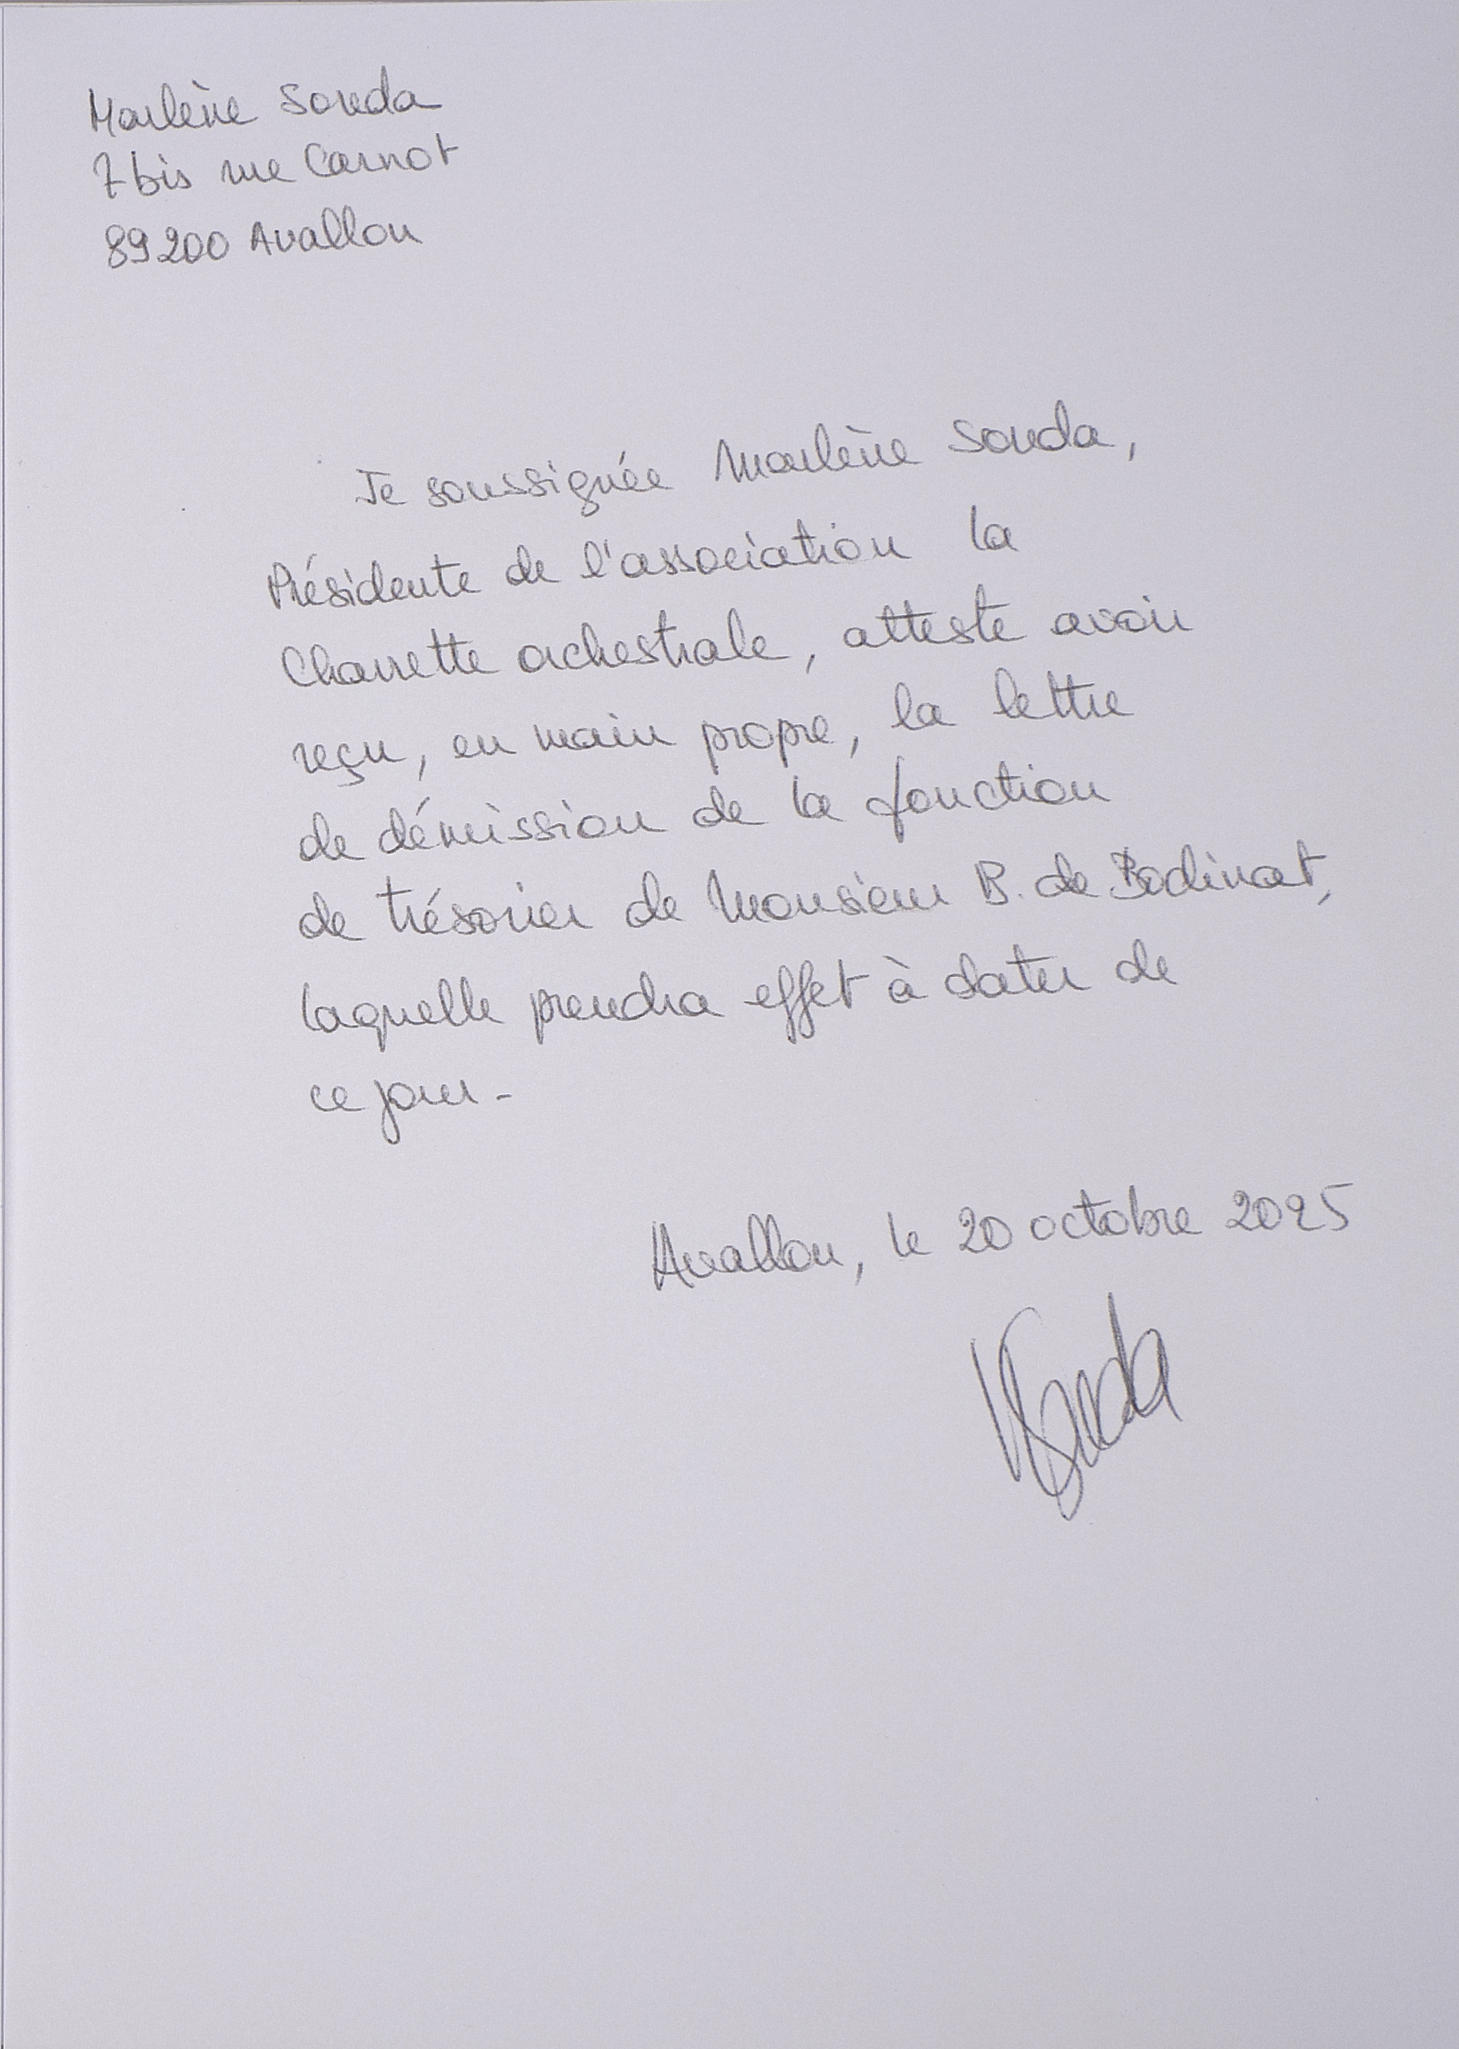 Marlène Souda
7 bis rue Carnot
89200 Avallon
Je soussignée Marlène Souda,
Présidente de l'association la
Charrette orchestrale, atteste avoir
reçu, en main propre, la lettre
de démission de la fonction
de trésorier de Monsieur B. de Bodinat,
laquelle prendra effet à dater de
ce jour -
Avallon, le 20 octobre 2025
MSouda